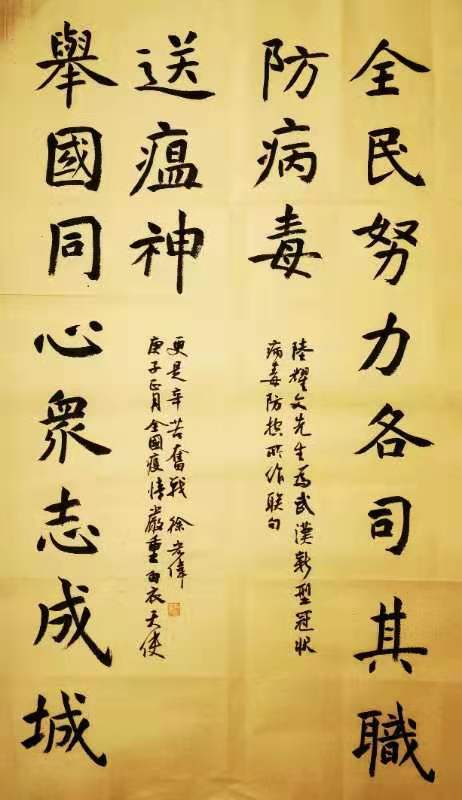 全民努力各司其職
防病毒
陸耀文先生為武漢新型冠狀
病毒防控所作聯句
舉國同心衆志成城
送瘟神
庚子正月全國疫情嚴重白衣天使
更是辛苦奮戰 徐偉